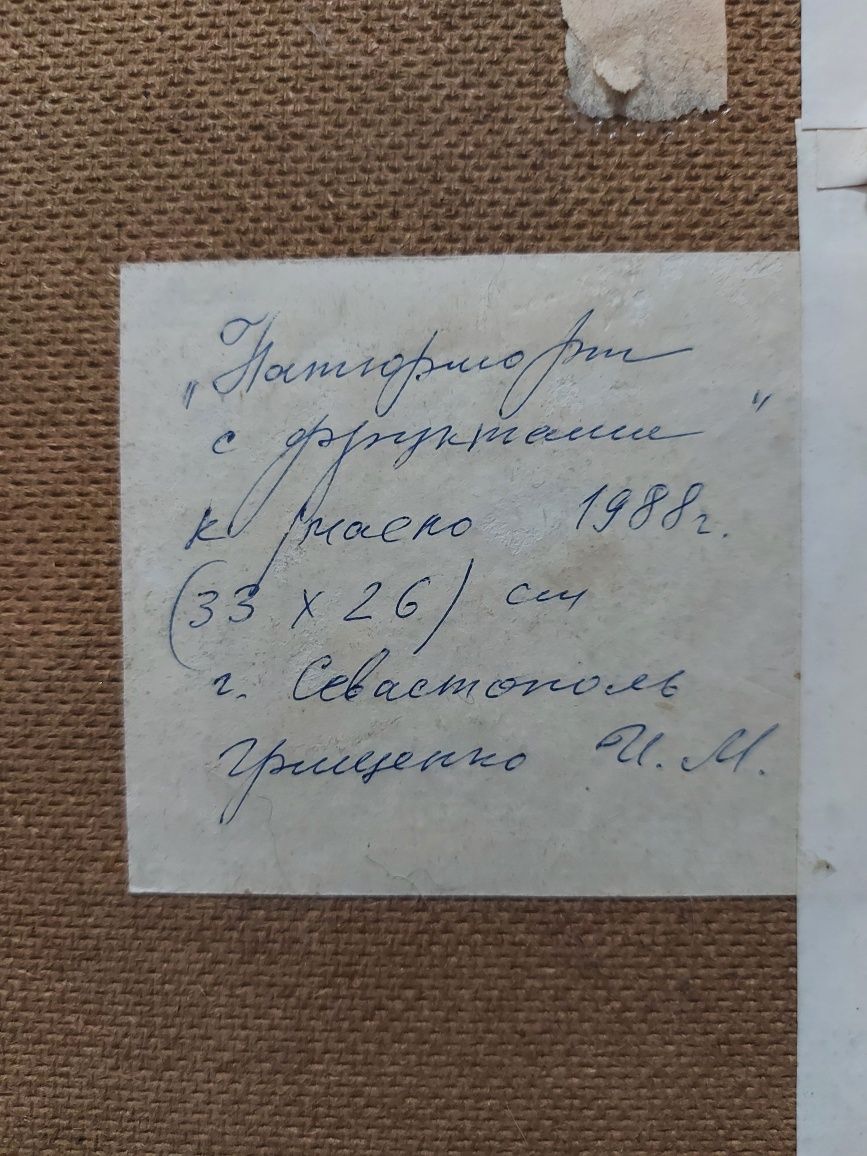 „Натюрморт
с фруктами"
к/масло 1988г.
(33 х 26) см
г. Севастополь
Грищенко И. М.